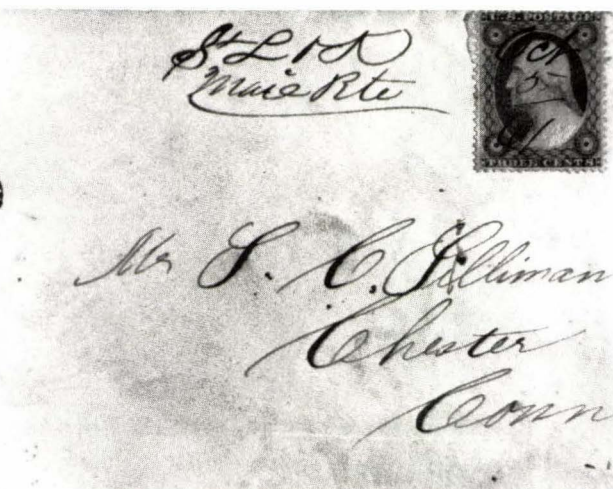 St L & K
Mail Rte
U.S. POSTAGE
THREE CENTS
Mr S. C. Silliman
Chester
Conn